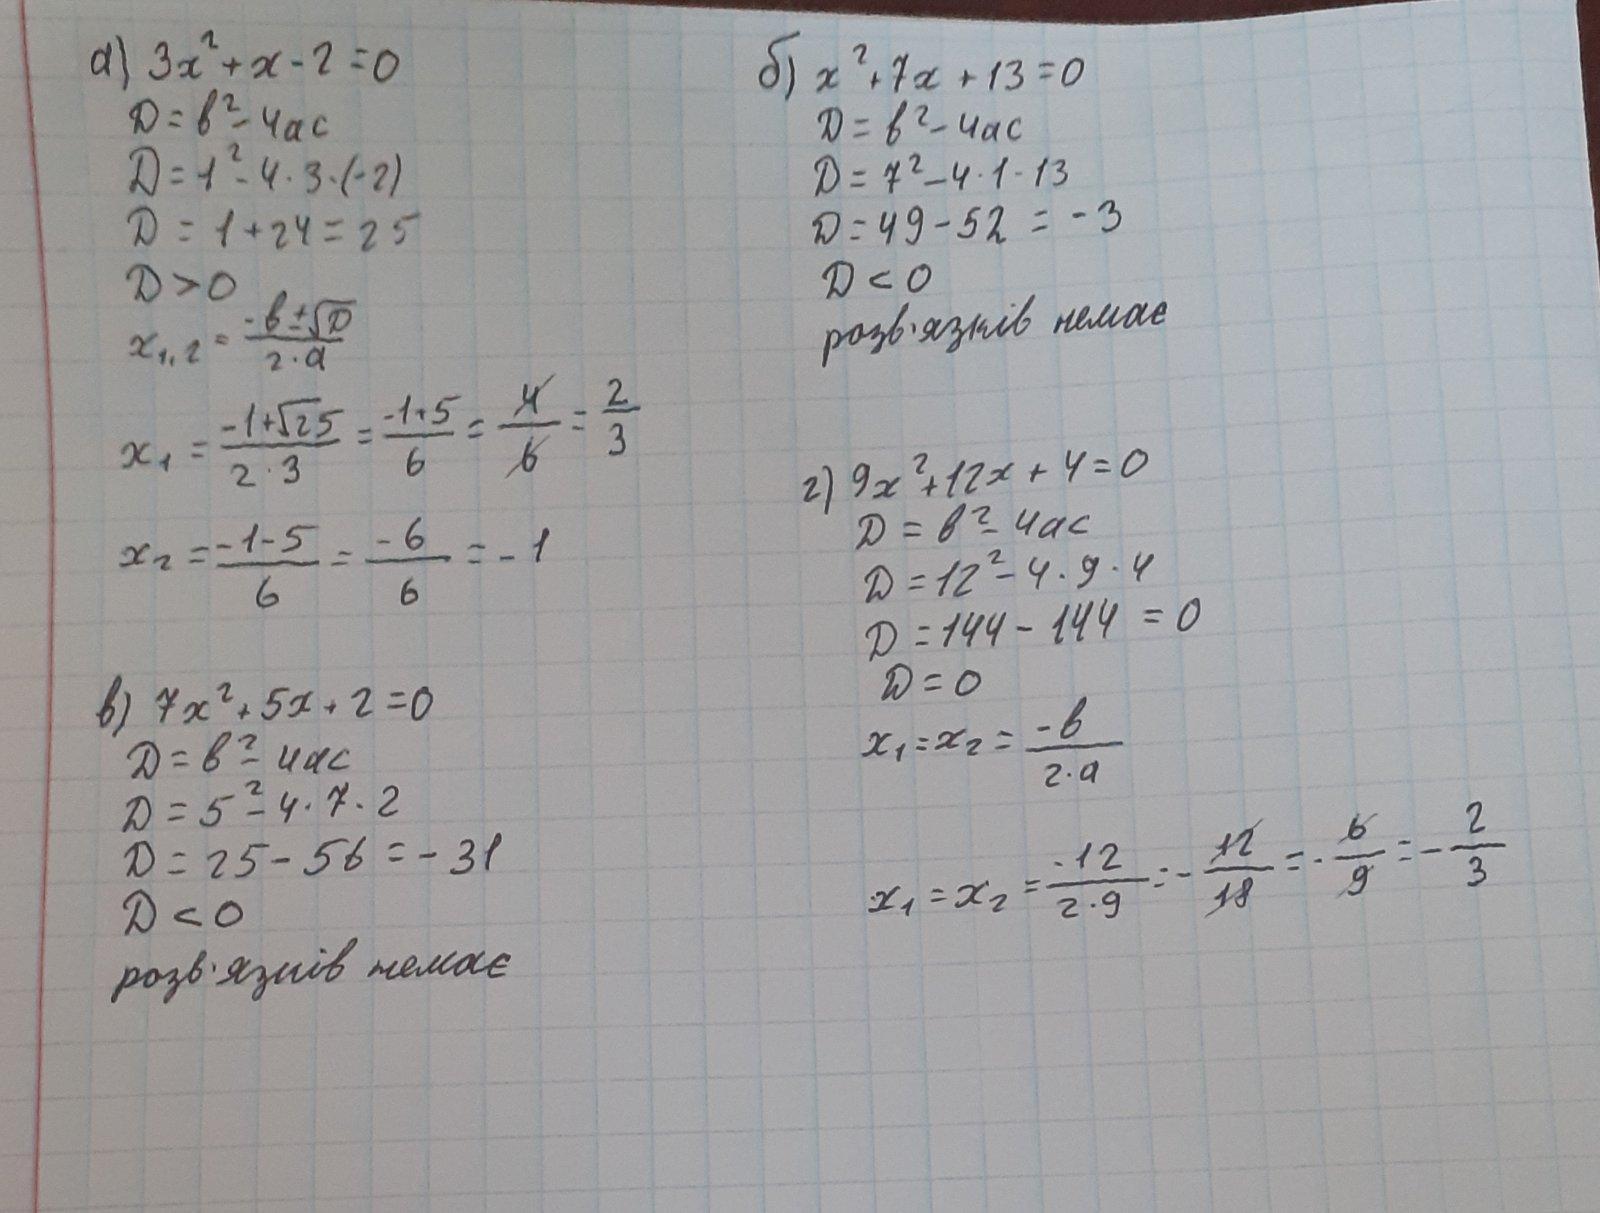 а) 3x² + x - 2 = 0
D = b² - 4ac
D = 1² - 4 · 3 · (-2)
D = 1 + 24 = 25
D > 0
x₁,₂ = (-b ± √D)/(2 · a)
x₁ = (-1 + √25)/(2 · 3) = (-1 + 5)/6 = 4/6 = 2/3
x₂ = (-1 - 5)/6 = (-6)/6 = -1
в) 7x² + 5x + 2 = 0
D = b² - 4ac
D = 5² - 4 · 7 · 2
D = 25 - 56 = -31
D < 0
розв'язків немає
б) x² + 7x + 13 = 0
D = b² - 4ac
D = 7² - 4 · 1 · 13
D = 49 - 52 = -3
D < 0
розв'язків немає
г) 9x² + 12x + 4 = 0
D = b² - 4ac
D = 12² - 4 · 9 · 4
D = 144 - 144 = 0
D = 0
x₁ = x₂ = (-b)/(2 · a)
x₁ = x₂ = (-12)/(2 · 9) = -12/18 = -6/9 = -2/3